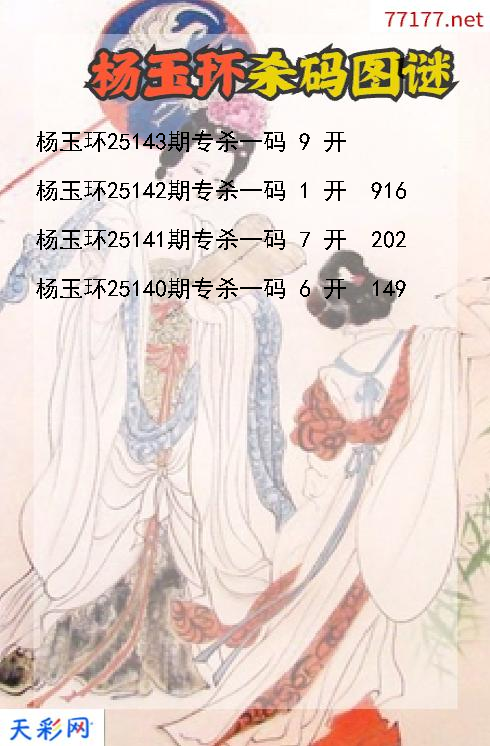 77177.net
杨玉环杀码图谜
杨玉环25143期专杀一码 9 开
杨玉环25142期专杀一码 1 开 916
杨玉环25141期专杀一码 7 开 202
杨玉环25140期专杀一码 6 开 149
天彩网